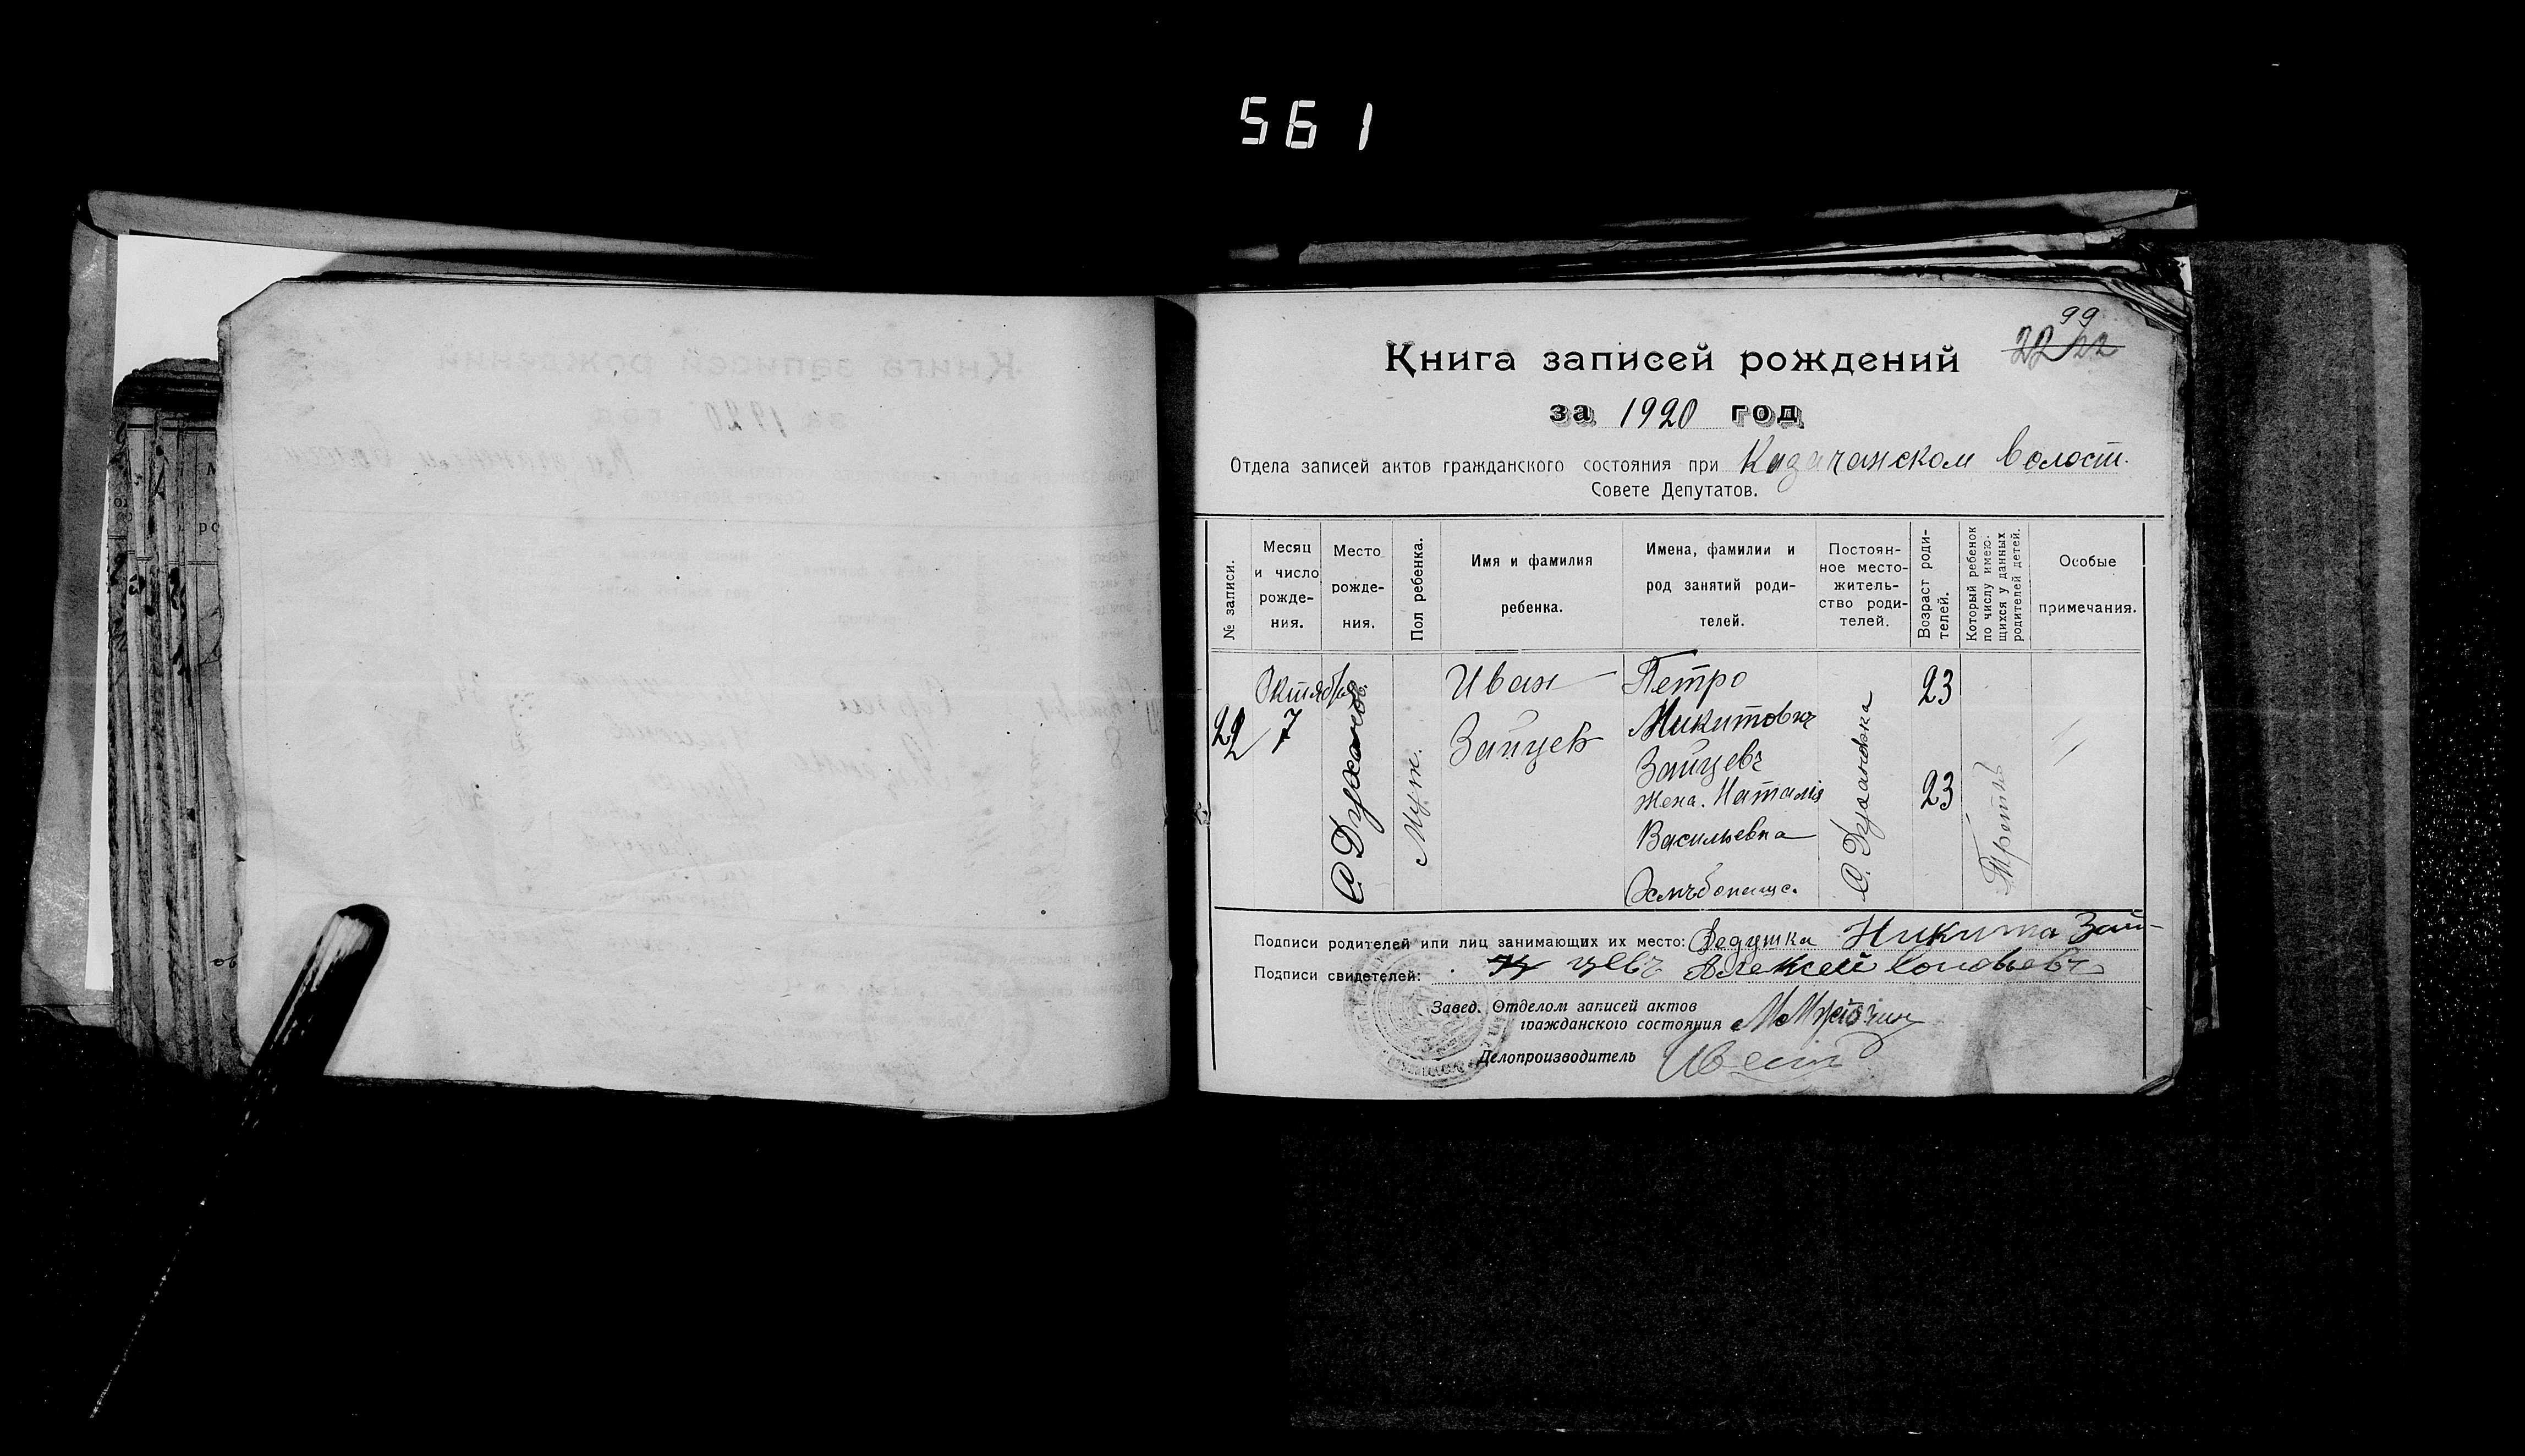 561
99
22 22
Книга записей рождений
за 1920 год
Отдела записей актов гражданского состояния при Казачанском Волост.
Совете Депутатов.
№ записи.
Месяц и число рожде-ния.
Место рожде-ния.
Пол ребенка.
Имя и фамилия ребенка.
Имена, фамилии и род занятий роди-телей.
Постоян-ное место-житель-ство роди-телей.
Возраст роди-телей.
Который ребенок по числу имею-щихся у данных родителей детей.
Особые примечания.
22
Октября
7
С. Духановка
Муж.
Иван
Зайцев
Петро
Микитовъ
Зайцевъ
Жена. Наталія
Васильевна
Хлѣбопашц.
С. Духановка
23
23
Третій
Подписи родителей или лиц занимающих их место: Дедушка Никита Зай-
Подписи свидетелей: цевъ Алексей Соловьевъ
Завед. Отделом записей актов
гражданского состояния
Делопроизводитель